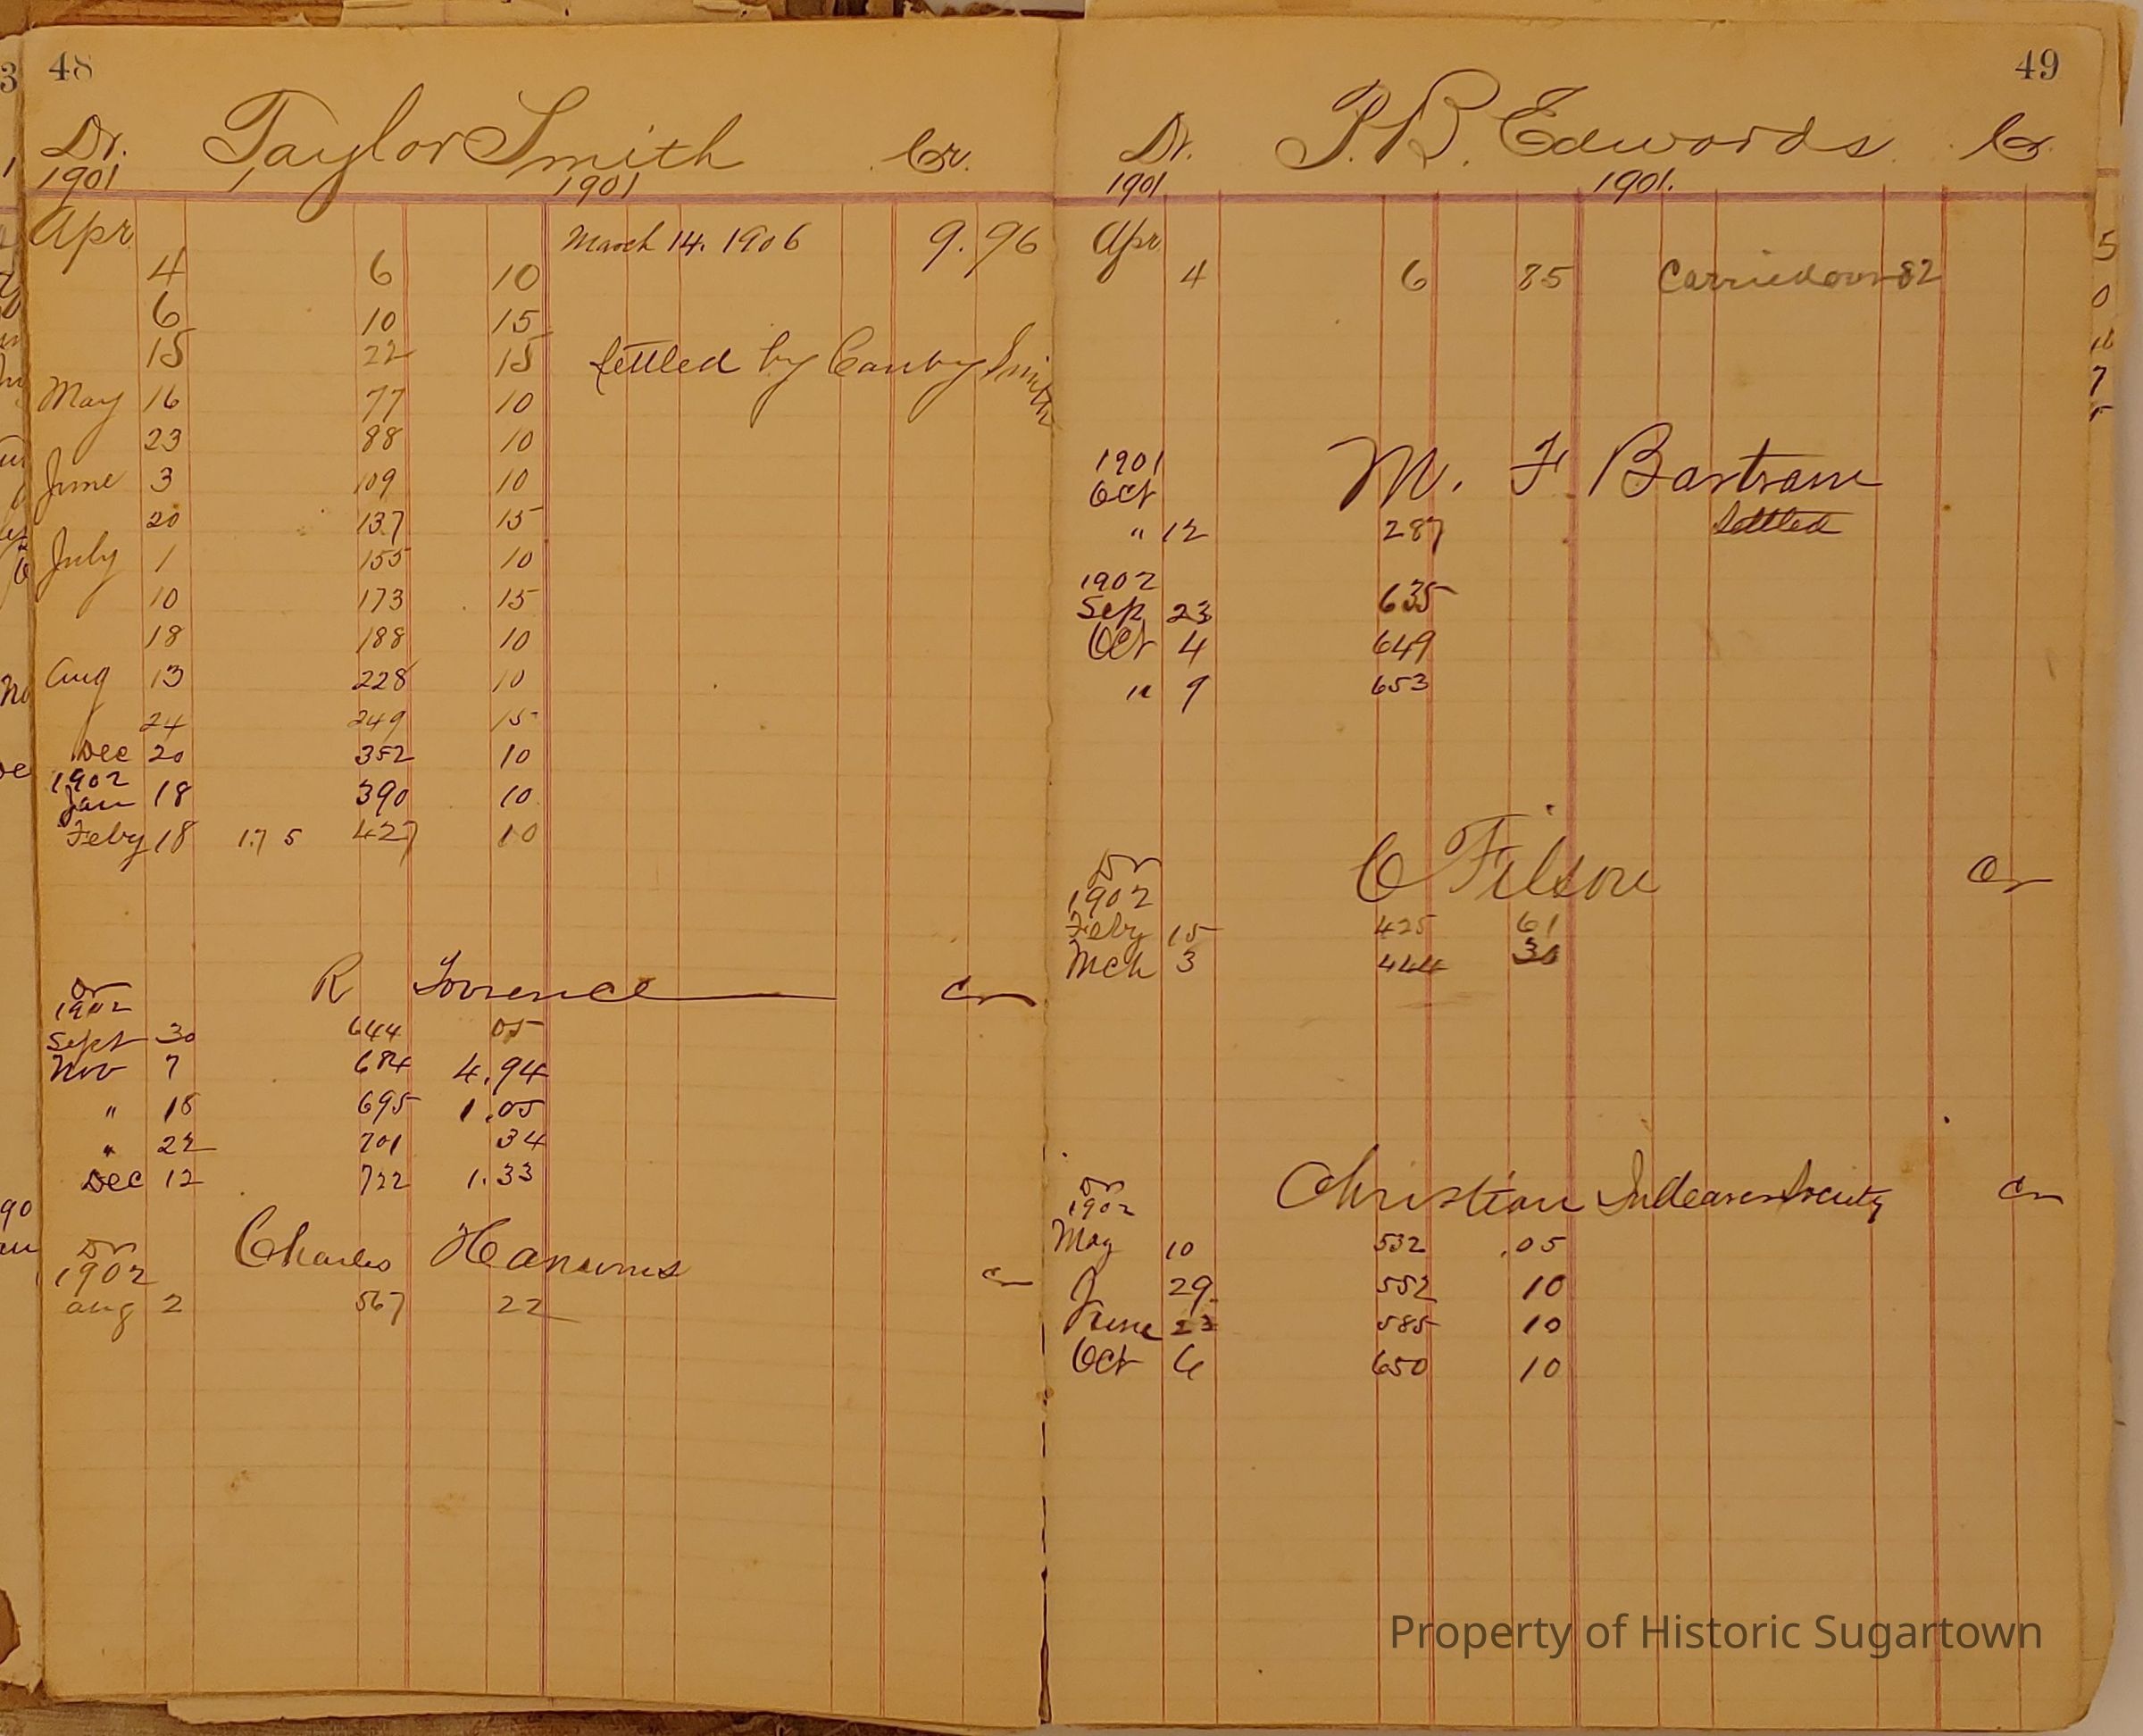 48
Dr. Taylor Smith Cr.
1901 1901
Apr March 14. 1906 9.96
4 6 10
6 10 15
15 22 15 Settled by Canby Smith
May 16 77 10
23 88 10
June 3 109 10
20 137 15
July 1 155 10
10 173 15
18 188 10
Aug 13 228 10
24 249 15
Dec 20 352 10
1902
Jan 18 390 10
Feby 18 1.75 427 10
Dr R Torrence Cr
1902
Sept 30 644 05
Nov 7 684 4.94
" 18 695 1.05
" 22 701 34
Dec 12 722 1.33
Dr Charles Cr
1902
Aug 2 567 22
49
Dr. P.B. Edwards Cr
1901 1901.
Apr
4 6 85 Carried over 82
1901 M. F. Bartram
Oct
" 12 287 Settled
1902
Sep 23 635
Oct 4 649
" 9 653
Dr C Filson Cr
1902
Feby 15 425 61
Mch 3 444
Dr Christian Indeavor Society Cr
1902
May 10 532 .05
29 552 10
June 23 585 10
Oct 6 650 10
Property of Historic Sugartown